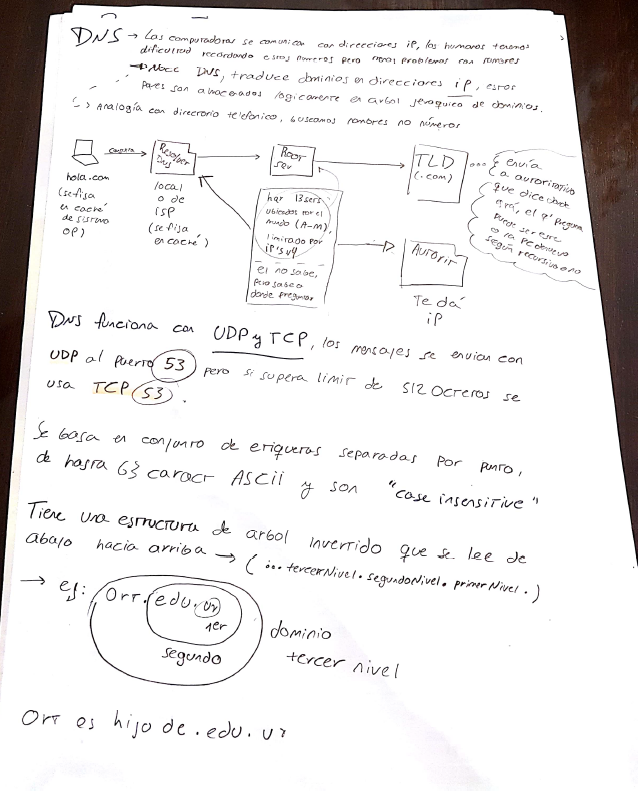 DNS → Las computadoras se comunican con direcciones iP, los humanos tenemos
dificultad recordando estos números pero no problemas con nombres
→ Nace DNS, traduce dominios en direcciones iP, estos
pares son almacenados logicamente en arbol jerarquico de dominios.
↳ Analogía con directorio telefónico, buscamos nombres no números
consulta
hola.com
(se fija
en caché
de sistema
OP)
Resolver
DNS
local
o de
iSP
(se fija
en caché)
Root
serv
hay 13 sers
ubicados por el
mundo (A-M),
limitado por
iP's v4
el no sabe,
pero sabe a
donde preguntar
TLD
(.com)
... envía
a autoritativo
que dice donde
está, el q' pregunta
puede ser este
o la Pc de nuevo
según recursivo o no
Autorit
Te dá
iP
DNS funciona con UDP y TCP, los mensajes se envian con
UDP al puerto 53 pero si supera limit de 512 Octetos se
usa TCP 53.
Se basa en conjunto de etiquetas separadas por punto,
de hasta 63 caract ASCii y son "case insensitive"
Tiene una estructura de arbol invertido que se lee de
abajo hacia arriba → (... tercerNivel.segundoNivel.primerNivel.)
→ ej: Ort.edu.uy
1er
segundo
dominio
tercer nivel
Ort es hijo de .edu.uy